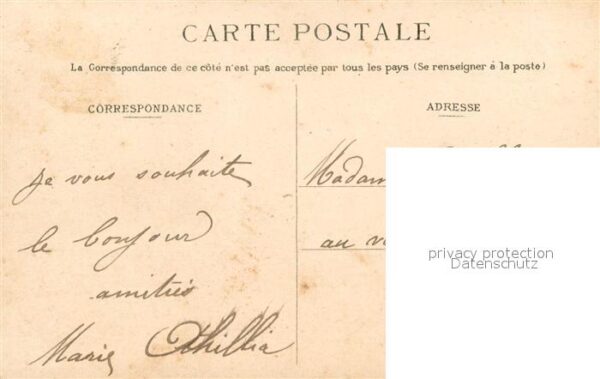 CARTE POSTALE
La Correspondance de ce côté n'est pas acceptée par tous les pays (Se renseigner à la poste)
CORRESPONDANCE
je vous souhaite
le bonjour
amitiés
Marie
ADRESSE
Madam
au
privacy protection
Datenschutz